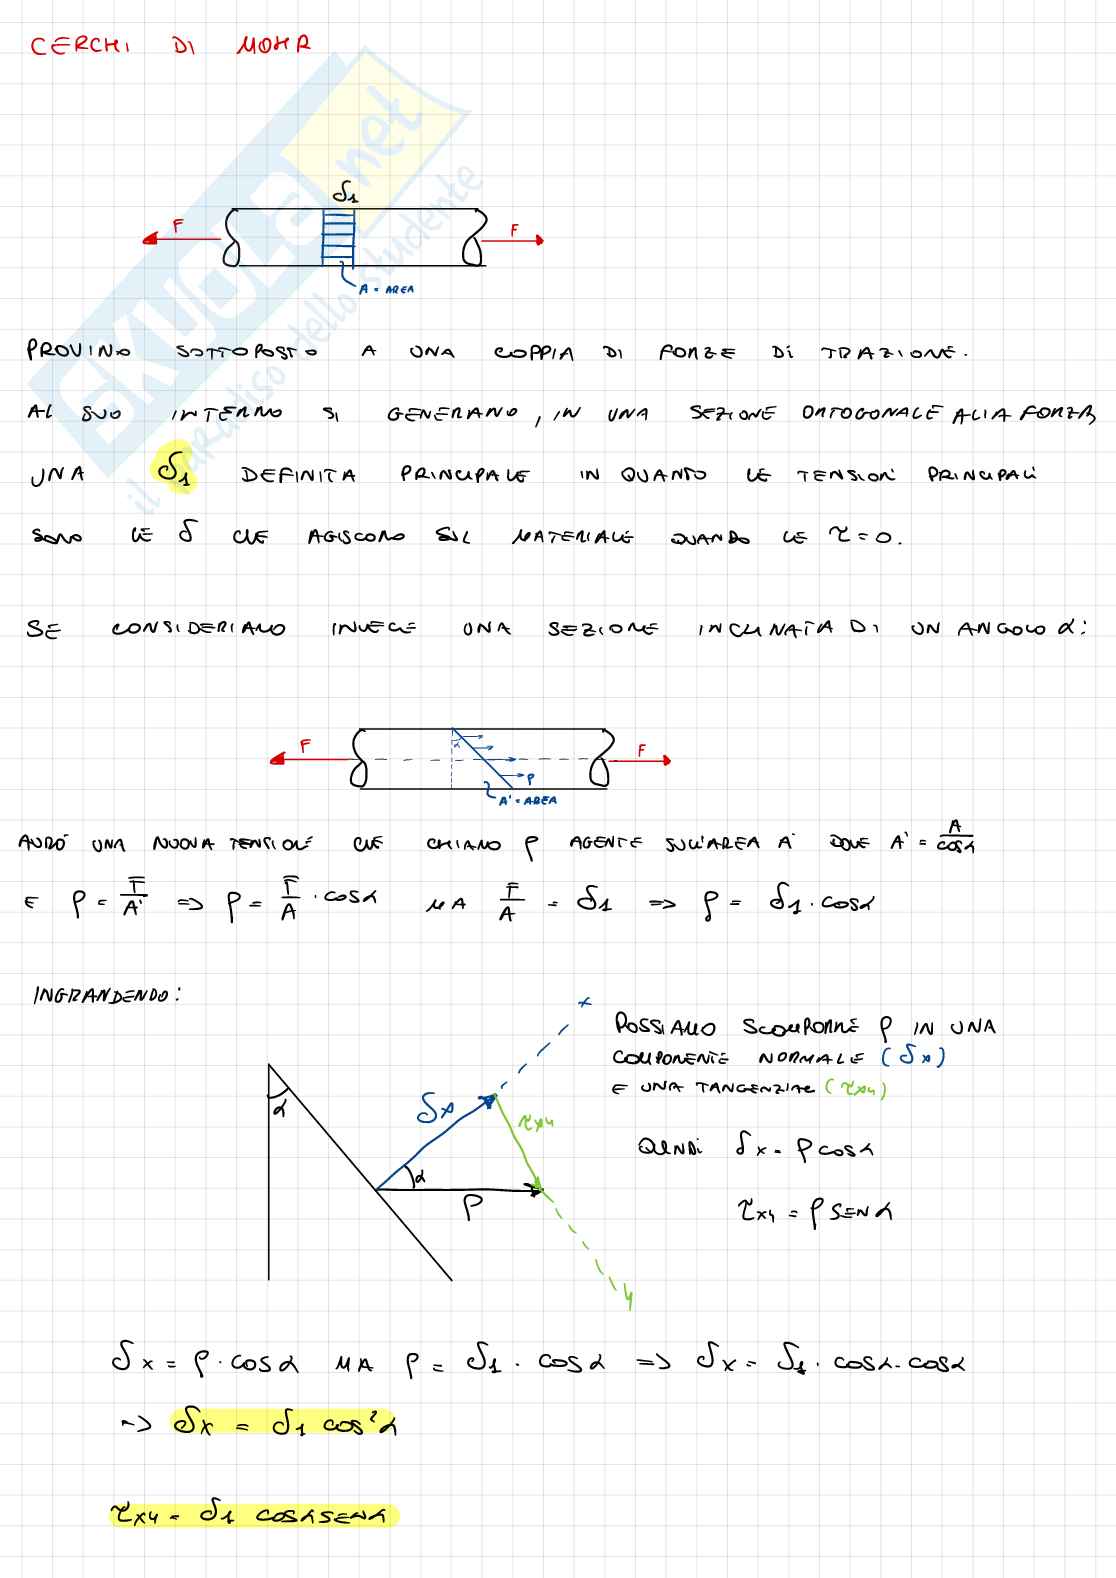 CERCHI DI MOHR
SKUOLA.net
il paradiso dello studente
δ1
F
F
A = AREA
PROVINO SOTTOPOSTO A UNA COPPIA DI FORZE DI TRAZIONE.
AL SUO INTERNO SI GENERANO, IN UNA SEZIONE ORTOGONALE ALLA FORZA,
UNA δ1 DEFINITA PRINCIPALE IN QUANTO LE TENSIONI PRINCIPALI
SONO LE δ CHE AGISCONO SUL MATERIALE QUANDO LE τ=0.
SE CONSIDERIAMO INVECE UNA SEZIONE INCLINATA DI UN ANGOLO α:
F
F
α
ρ
A' = AREA
AVRÒ UNA NUOVA TENSIONE CHE CHIAMO ρ AGENTE SULL'AREA A' DOVE A' = A/cosα
E ρ = F/A' => ρ = F/A · cosα MA F/A = δ1 => ρ = δ1 · cosα
INGRANDENDO:
x
POSSIAMO SCOMPORRE ρ IN UNA
COMPONENTE NORMALE (δx)
E UNA TANGENZIALE (τxy)
α
δx
τxy
α
ρ
y
QUINDI δx = ρ cosα
τxy = ρ SENα
δx = ρ · cosα MA ρ = δ1 · cosα => δx = δ1 · cosα · cosα
-> δx = δ1 cos²α
τxy = δ1 cosα senα